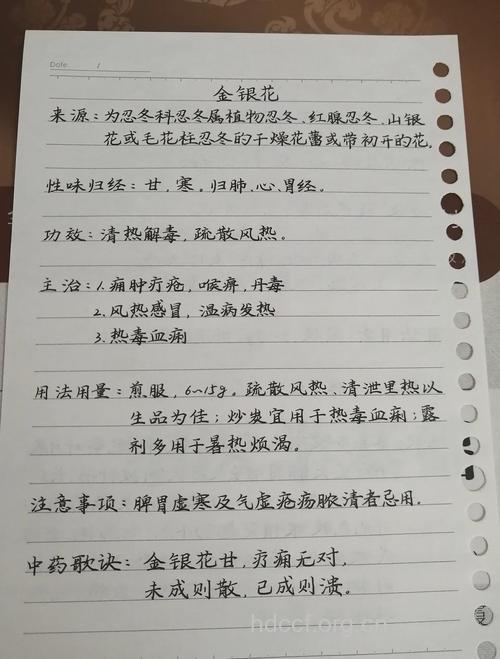 Date: /
金银花
来源：为忍冬科忍冬属植物忍冬、红腺忍冬、山银
花或毛花柱忍冬的干燥花蕾或带初开的花。
性味归经：甘，寒。归肺、心、胃经。
功效：清热解毒，疏散风热。
主治：1.痈肿疔疮，喉痹，丹毒
2.风热感冒，温病发热
3.热毒血痢
用法用量：煎服，6~15g。疏散风热、清泄里热以
生品为佳；炒炭宜用于热毒血痢；露
剂多用于暑热烦渴。
注意事项：脾胃虚寒及气虚疮疡脓清者忌用。
中药歌诀：金银花甘，疗痈无对，
未成则散，已成则溃。
hdccf.org.cn